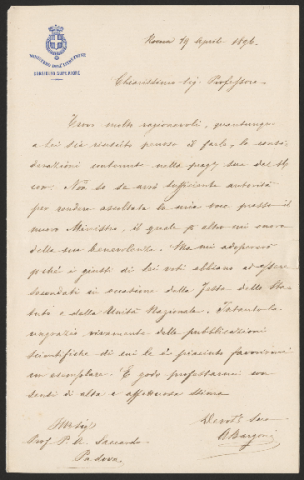 MINISTERO DELL'ISTRUZIONE
CONSIGLIO SUPERIORE
Roma 19 Aprile 1896.
Chiarissimo Sig. Professore.
Trovo molto ragionevoli, quantunque
a lei sia riuscito penoso il farle, le consi-
derazioni contenute nella preg. sua del
corr. Non so se avrò sufficiente autorità
per rendere ascoltata la mia voce presso il
nuovo Ministro, il quale p. altro mi onora
della sua benevolenza. Ma mi adopererò
perchè i giusti di Lei voti abbiano ad essere
secondati in occasione della Festa dello Sta-
tuto e della Unità Nazionale. Intanto la
ringrazio vivamente delle pubblicazioni
scientifiche di cui le è piaciuto favorirmi
un esemplare. E godo professarmi con
sensi di alta e affettuosa stima
Devot. Suo
Prof. P. A. Saccardo
A Bargoni
Padova.